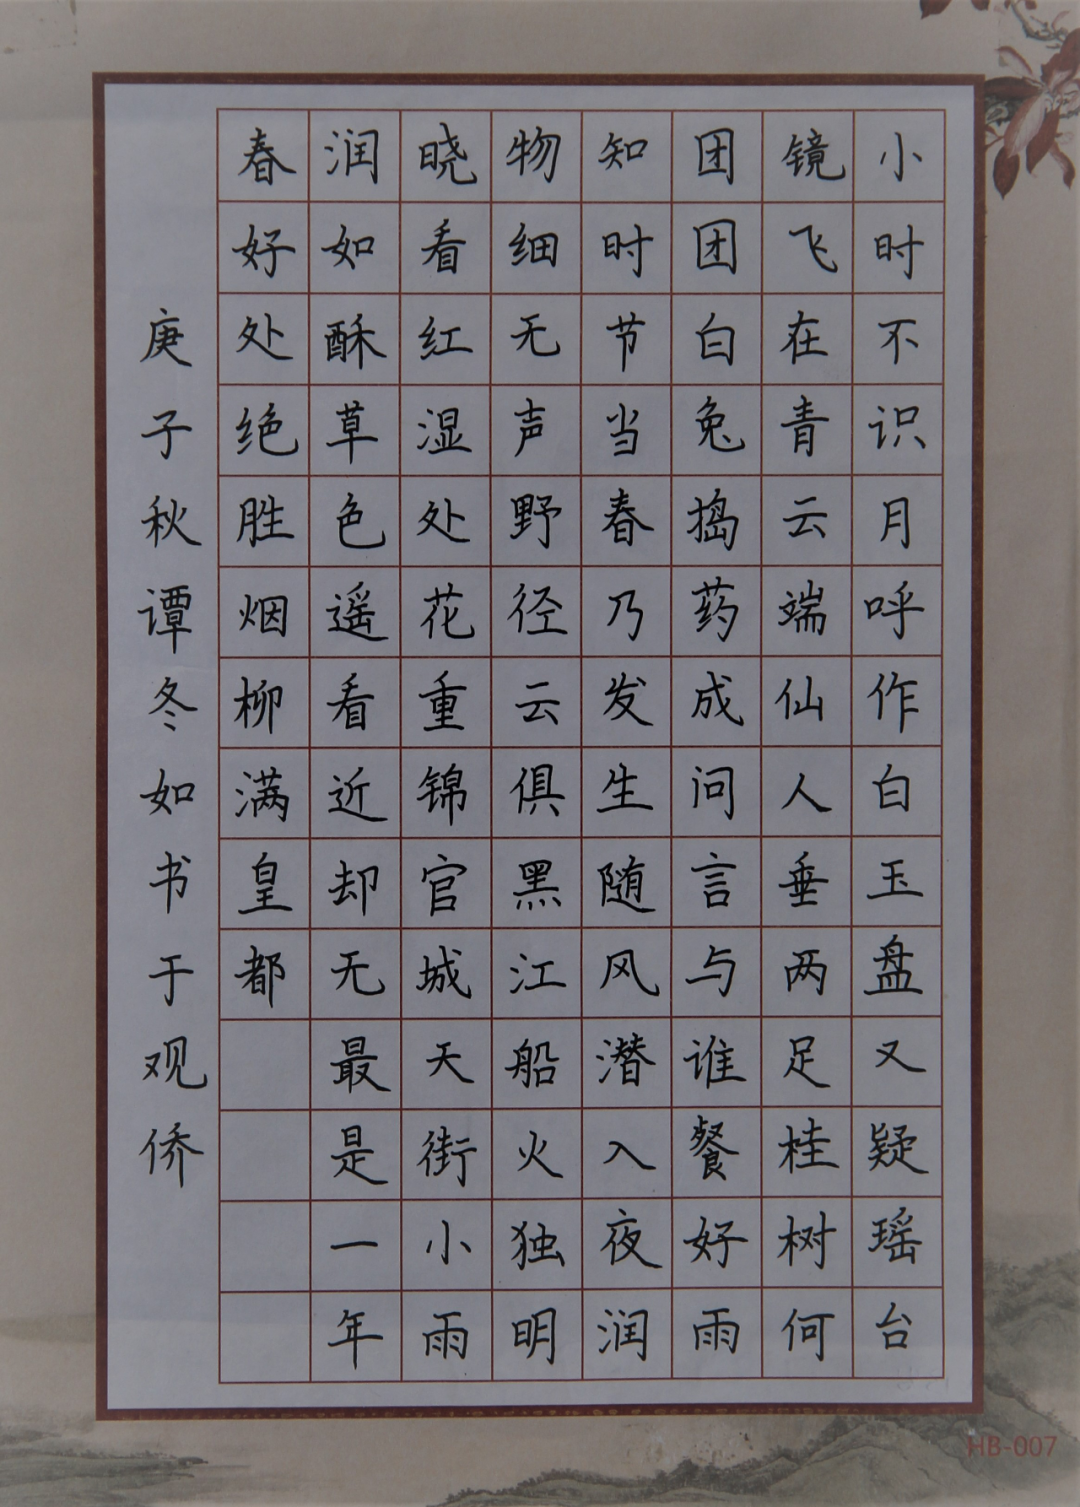 小时不识月呼作白玉盘又疑瑶台
镜飞在青云端仙人垂两足桂树何
团团白兔捣药成问言与谁餐好雨
知时节当春乃发生随风潜入夜润
物细无声野径云俱黑江船火独明
晓看红湿处花重锦官城天街小雨
润如酥草色遥看近却无最是一年
春好处绝胜烟柳满皇都
庚子秋谭冬如书于观侨
HB-007